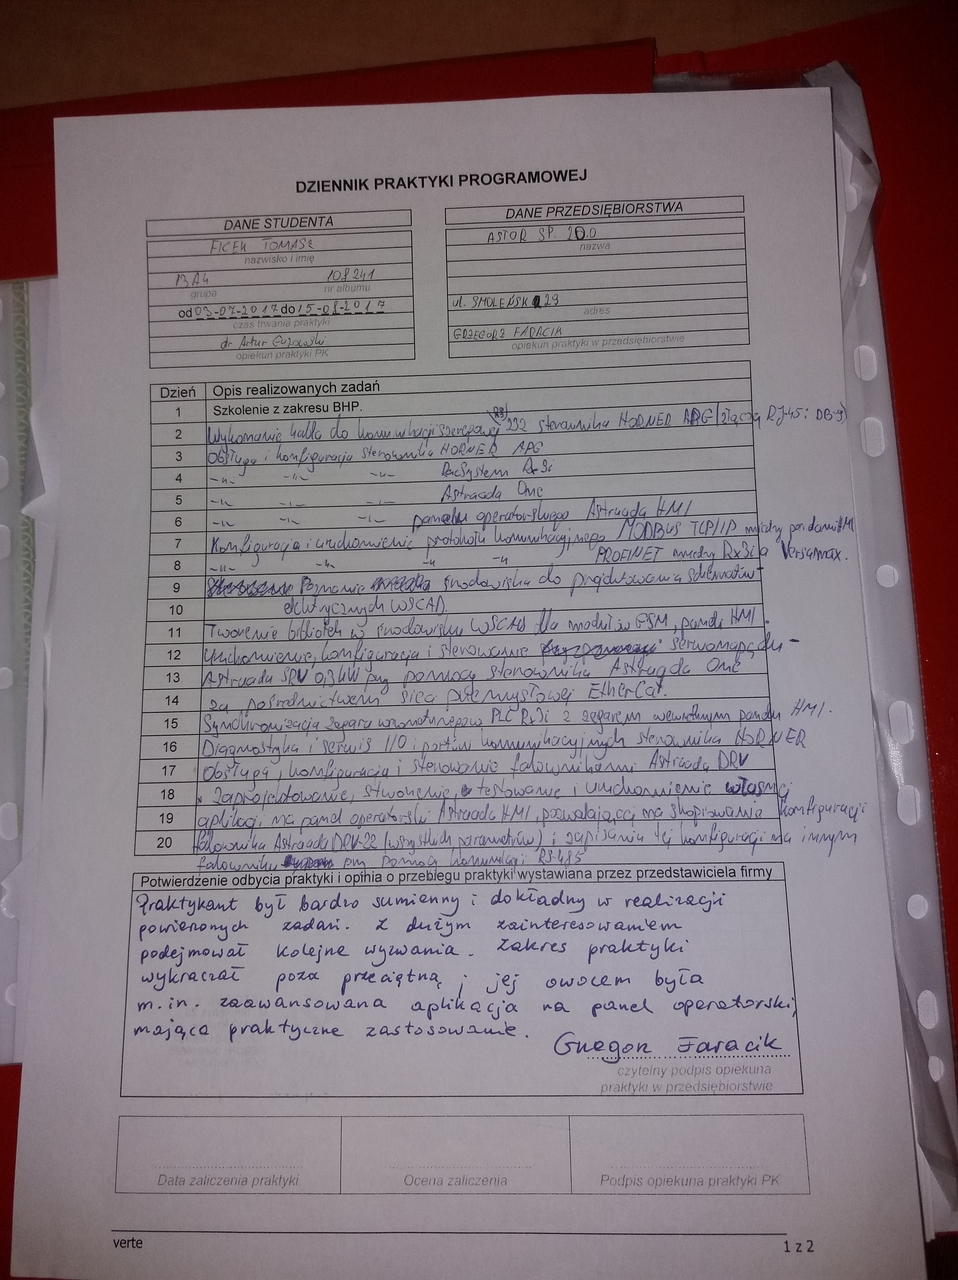 DZIENNIK PRAKTYKI PROGRAMOWEJ
DANE STUDENTA
FICEK TOMASZ
nazwisko i imię
13A4 108241
grupa nr albumu
od 03-07-2017 do 15-08-2017
czas trwania praktyki
dr Artur
opiekun praktyki PK
DANE PRZEDSIĘBIORSTWA
ASTOR SP. ZO.O
nazwa
ul. SMOLEŃSK 29
adres
GRZEGORZ FARACIK
opiekun praktyki w przedsiębiorstwie
Dzień Opis realizowanych zadań
1 Szkolenie z zakresu BHP.
2 Wykonanie kabla do komunikacji szeregowej RS 232 sterownika HORNER APG (złącza RJ-45: DB-9)
3 Obsługa i konfiguracja sterownika HORNER APG
4 -||- -||- -||- PacSystem Rx3i
5 -||- -||- -||- Astraada One
6 -||- -||- -||- panelu operatorskiego Astraada HMI
7 Konfiguracja i uruchomienie protokołu komunikacyjnego MODBUS TCP/IP między panelami HMI
8 -||- -||- -||- -||- PROFINET między Rx3i a Versamax.
9 Poznanie środowiska do projektowania schematów
10 elektrycznych WSCAD.
11 Tworzenie bibliotek w środowisku WSCAD dla modułów GSM, paneli HMI.
12 Uruchomienie, konfiguracja i sterowanie serwonapędu
13 Astraada SRV 0,4kW przy pomocy sterownika Astraada One
14 za pośrednictwem sieci przemysłowej EtherCat.
15 Synchronizacja zegara wewnętrznego PLC Rx3i z zegarem wewnętrznym panelu HMI.
16 Diagnostyka i serwis I/O i portów komunikacyjnych sterownika HORNER
17 Obsługa, konfiguracja i sterowanie falownikami Astraada DRV
18 Zaprojektowanie, stworzenie, testowanie i uruchomienie własnej
19 aplikacji na panel operatorski Astraada HMI, pozwalającej na skopiowanie konfiguracji
20 falownika Astraada DRV-22 (wszystkich parametrów) i zapisania tej konfiguracji na innym
falowniku przy pomocy komunikacji RS-485
Potwierdzenie odbycia praktyki i opinia o przebiegu praktyki wystawiana przez przedstawiciela firmy
Praktykant był bardzo sumienny i dokładny w realizacji
powierzonych zadań. Z dużym zainteresowaniem
podejmował kolejne wyzwania. Zakres praktyki
wykraczał poza przeciętną i jej owocem była
m.in. zaawansowana aplikacja na panel operatorski,
mająca praktyczne zastosowanie.
Grzegorz Faracik
czytelny podpis opiekuna
praktyki w przedsiębiorstwie
Data zaliczenia praktyki Ocena zaliczenia Podpis opiekuna praktyki PK
verte 1 z 2